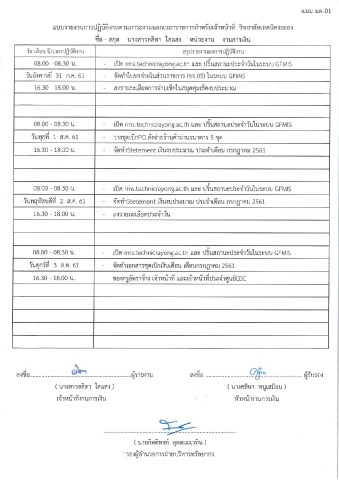 แบบ งค.01
แบบรายงานการปฏิบัติงานตามภาระงานนอกเวลาราชการสำหรับเจ้าหน้าที่ วิทยาลัยเทคนิคระยอง
ชื่อ - สกุล นางสาวลลิตา ใสแสง หน่วยงาน งานการเงิน
วัน เดือน ปี/เวลาปฏิบัติงาน สรุปรายงานผลการปฏิบัติงาน
08.00 - 08.30 น. - เปิด rms.technicrayong.ac.th และ ปริ้นสถานะประจำวันในระบบ GFMIS
วันอังคารที่ 31 ก.ค. 61 - จัดทำใบขอจ่ายในส่วนราชการ (ขจ.05) ในระบบ GFMIS
16.30 - 18.00 น. - ลงรายละเอียดการจ่ายเช็คในสมุดคุมเงินงบประมาณ
08.00 - 08.30 น. - เปิด rms.technicrayong.ac.th และ ปริ้นสถานะประจำวันในระบบ GFMIS
วันพุธที่ 1 ส.ค. 61 - วางชุดเบิกPO สั่งจ่ายร้านค้าผ่านธนาคาร 5 ชุด
16.30 - 18.00 น. - จัดทำStetement เงินงบประมาณ ประจำเดือน กรกฎาคม 2561
08.00 - 08.30 น. - เปิด rms.technicrayong.ac.th และ ปริ้นสถานะประจำวันในระบบ GFMIS
วันพฤหัสบดีที่ 2 ส.ค. 61 - จัดทำStetement เงินงบประมาณ ประจำเดือน กรกฎาคม 2561
16.30 - 18.00 น. - ลงรายละเอียดประจำวัน
08.00 - 08.30 น. - เปิด rms.technicrayong.ac.th และ ปริ้นสถานะประจำวันในระบบ GFMIS
วันศุกร์ที่ 3 ส.ค. 61 - จัดทำเอกสารชุดเบิกเงินเดือน เดือนกรกฎาคม 2561
16.30 - 18.00 น. - ของครูอัตราจ้าง เจ้าหน้าที่ และเจ้าหน้าที่ประจำศูนย์EEC
ลงชื่อ ผู้รายงาน ลงชื่อ ผู้รับรอง
( นางสาวลลิตา ใสแสง ) ( นางศลิษา หนูเสมียน )
เจ้าหน้าที่งานการเงิน หัวหน้างานการเงิน
รองผู้อำนวยการฝ่ายบริหารทรัพยากร